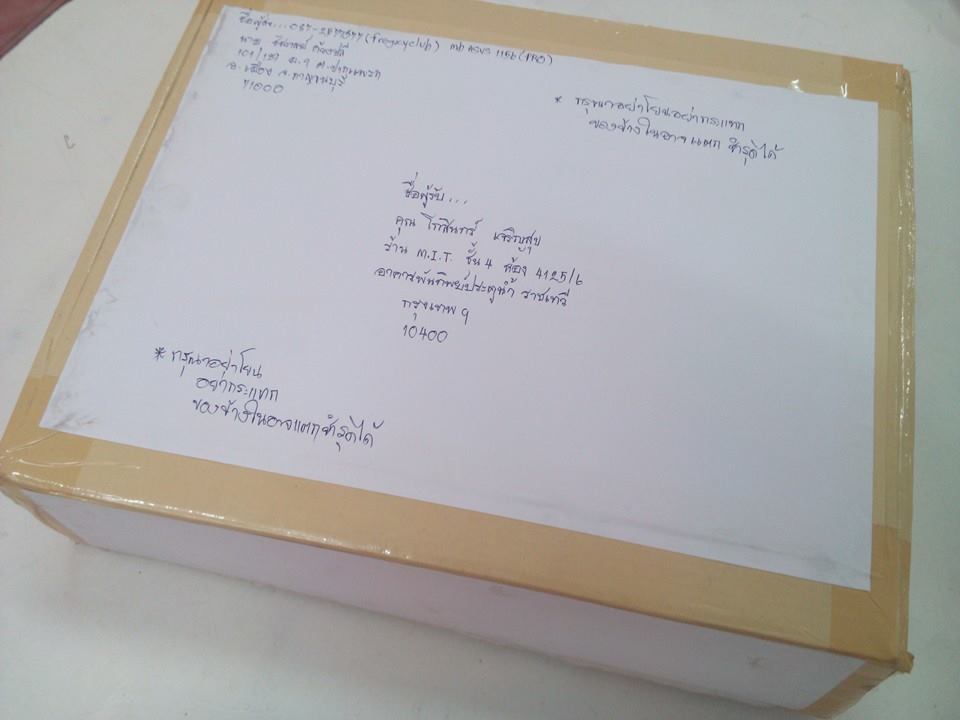 ชื่อผู้ส่ง... (frogxyclub) mb asus 1156 (PRO)
นาย
101/127 ม.9 ต.ปากแพรก
อ.เมือง จ.กาญจนบุรี
71000
* กรุณาอย่าโยนอย่ากระแทก
ของข้างในอาจแตกชำรุดได้
ชื่อผู้รับ...
คุณ โกสินทร์ เจริญสุข
ร้าน M.I.T. ชั้น 4 ห้อง 4125/6
อาคารพันทิพย์ประตูน้ำ ราชเทวี
กรุงเทพฯ
10400
* กรุณาอย่าโยน
อย่ากระแทก
ของข้างในอาจแตกชำรุดได้